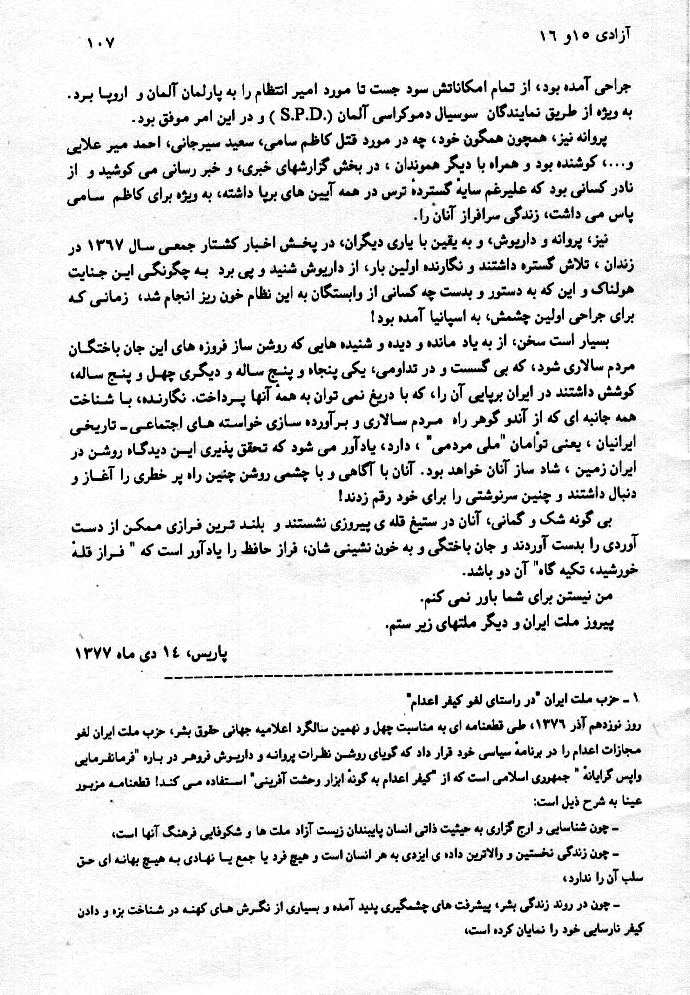 آزادی ۱۵و ۱۶
۱۰۷
جراحی آمده بود، از تمام امکاناتش سود جست تا مورد امیر انتظام را به پارلمان آلمان و اروپا برد.
به ویژه از طریق نمایندگان سوسیال دموکراسی آلمان (S.P.D.) و در این امر موفق بود.
پروانه نیز، همچون همگون خود، چه در مورد قتل کاظم سامی، سعید سیرجانی، احمد میر علایی
و...، کوشنده بود و همراه با دیگر هموندان ، در بخش گزارشهای خبری، و خبر رسانی می کوشید و از
نادر کسانی بود که علیرغم سایهٔ گستردهٔ ترس در همه آیین های برپا داشته، به ویژه برای کاظم سامی
پاس می داشت، زندگی سرافراز آنان را.
نیز، پروانه و داریوش، و به یقین با یاری دیگران، در پخش اخبار کشتار جمعی سال ۱۳۶۷ در
زندان ، تلاش گستره داشتند و نگارنده اولین بار، از داریوش شنید و پی برد به چگونگی این جنایت
هولناک و این که به دستور و بدست چه کسانی از وابستگان به این نظام خون ریز انجام شد، زمانی که
برای جراحی اولین چشمش، به اسپانیا آمده بود!
بسیار است سخن، از به یاد مانده و دیده و شنیده هایی که روشن ساز فروزه های این جان باختگان
مردم سالاری شود، که بی گسست و در تداومی، یکی پنجاه و پنج ساله و دیگری چهل و پنج ساله،
کوشش داشتند در ایران برپایی آن را، که با دریغ نمی توان به همه آنها پرداخت. نگارنده، با شناخت
همه جانبه ای که از آندو گوهر راه مردم سالاری و برآورده سازی خواسته های اجتماعی ـ تاریخی
ایرانیان ، یعنی توأمان "ملی مردمی" ، دارد، یادآور می شود که تحقق پذیری این دیدگاه روشن در
ایران زمین ، شاد ساز آنان خواهد بود. آنان با آگاهی و با چشمی روشن چنین راه پر خطری را آغاز و
دنبال داشتند و چنین سرنوشتی را برای خود رقم زدند!
بی گونه شک و گمانی، آنان در ستیغ قله ی پیروزی نشستند و بلند ترین فرازی ممکن از دست
آوردی را بدست آوردند و جان باختگی و به خون نشینی شان، فراز حافظ را یادآور است که " فراز قلهٔ
خورشید، تکیه گاه" آن دو باشد.
من نیستن برای شما باور نمی کنم.
پیروز ملت ایران و دیگر ملتهای زیر ستم.
پاریس، ۱۴ دی ماه ۱۳۷۷
۱ ـ حزب ملت ایران "در راستای لغو کیفر اعدام"
روز نوزدهم آذر ۱۳۷۶، طی قطعنامه ای به مناسبت چهل و نهمین سالگرد اعلامیه جهانی حقوق بشر، حزب ملت ایران لغو
مجازات اعدام را در برنامهٔ سیاسی خود قرار داد که گویای روشن نظرات پروانه و داریوش فروهر در باره "فرمانفرمایی
واپس گرایانهٔ " جمهوری اسلامی است که از "کیفر اعدام به گونهٔ ابزار وحشت آفرینی" استفاده می کند! قطعنامه مزبور
عینا به شرح ذیل است:
ـ چون شناسایی و ارج گزاری به حیثیت ذاتی انسان پایبندان زیست آزاد ملت ها و شکوفایی فرهنگ آنها است،
ـ چون زندگی نخستین و والاترین داده ی ایزدی به هر انسان است و هیچ فرد یا جمع یا نهادی به هیچ بهانه ای حق
سلب آن را ندارد،
ـ چون در روند زندگی بشر، پیشرفت های چشمگیری پدید آمده و بسیاری از نگرش های کهنه در شناخت بزه و دادن
کیفر نارسایی خود را نمایان کرده است،